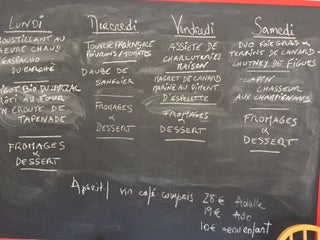 LUNDI
CROUSTILLANT AU
CHEVRE CHAUD
GASPACHO
DU
GIGOT BIO DU LARZAC
RÔTI AU FOUR
EN CROUTE DE
TAPENADE
FROMAGES
&
DESSERT
MERCREDI
TOURTE PROVENSALE
POIVRONS/TOMATES
DAUBE DE
SANGLIER
FROMAGES
&
DESSERT
VENDREDI
ASSIETE DE
CHARCUTERIES
MAISON
MAGRET DE CANARD
MARINÉ AU PIMENT
D'ESPELETTE
FROMAGES
&
DESSERT
SAMEDI
DUO FOIE GRAS &
TERRINE DE CANARD
CHUTNEY DE FIGUES
LAPIN
CHASSEUR
AUX CHAMPIGNONS
FROMAGES
&
DESSERT
Apéritif vin café compris 28€ Adulte
19€ Ado
10€ menu enfant